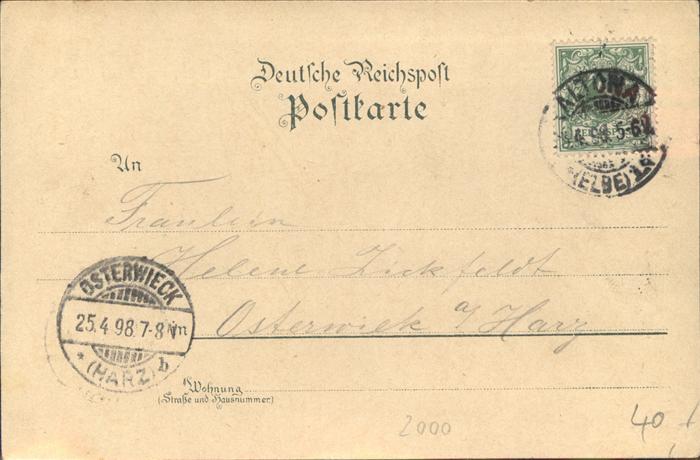 Deutsche Reichspost
Postkarte
ALTONA
98 5-6
(ELBE)
An
Fräulein
Helene Zickfeldt
Osterwiek a/ Harz
OSTERWIECK
25.4.98.7-8 Nm
* (HARZ) b
Wohnung
(Straße und Hausnummer)
2000
40